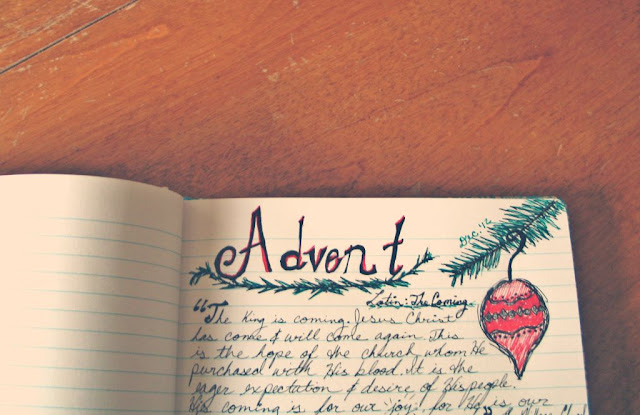 Advent
Dec. '12
Latin: The Coming.
"The King is coming. Jesus Christ
has come & will come again. This
is the hope of the church whom He
purchased with His blood. It is the
eager expectation & desire of His people.
His coming is for our 'joy', for He is our